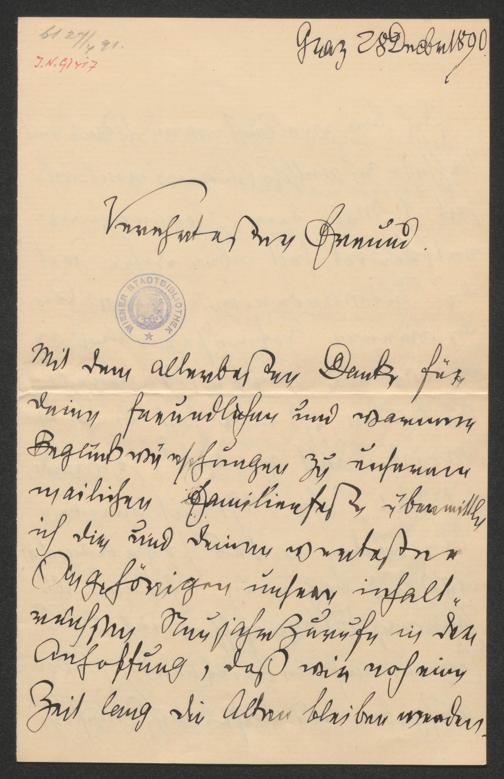 Graz 28 Decbr 1890.
J.N. 91417
Verehrtester Freund.
WIENER STADTBIBLIOTHEK
Mit dem allerbesten Danke für
deine freundlichen und warmen
Beglückwünschungen zu unserem
Familienfeste übermittle
ich dir und deinen werthesten
Angehörigen unsere inhalt-
reichsten Neujahrszurufe in der
Anhoffung, daß wir noch eine
Zeit lang die Alten bleiben werden.